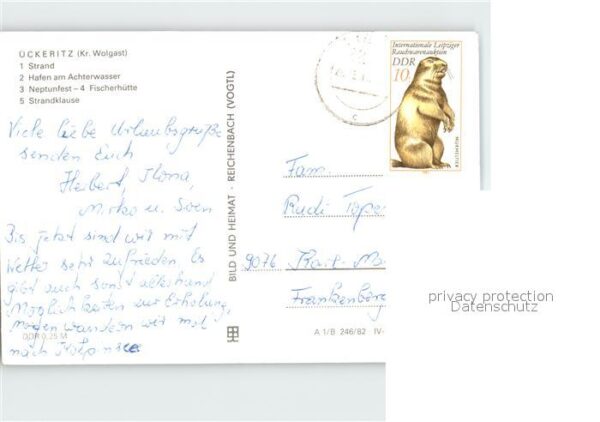 ÜCKERITZ (Kr. Wolgast)
1 Strand
2 Hafen am Achterwasser
3 Neptunfest – 4 Fischerhütte
5 Strandklause
Viele liebe Urlaubsgrüße
senden Euch
Herbert, Ilona,
Mirko u. Sven
Bis jetzt sind wir mit
Wetter sehr zufrieden. Es
gibt auch sonst allerhand
Möglichkeiten zur Erholung,
morgen wandern wir mal
nach
DDR 0,25 M
BILD UND HEIMAT · REICHENBACH (VOGTL)
Internationale Leipziger
Rauchwarenauktion
DDR
10
c
Fam.
Rudi
9076 Karl-M
Frankenberg
A 1/B 246/82 IV-
privacy protection
Datenschutz